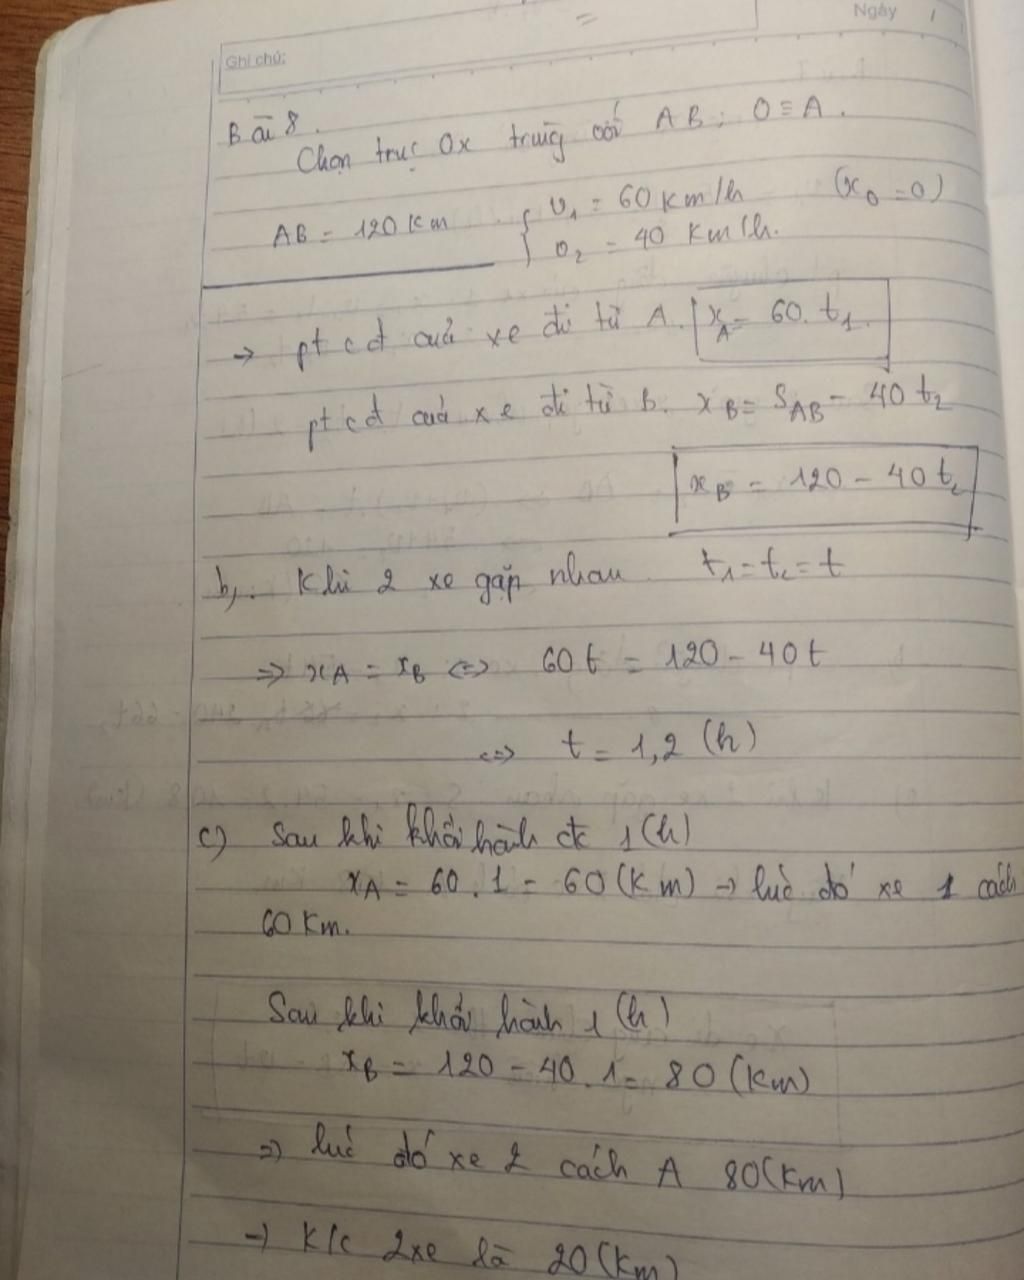 Ngày /
Ghi chú:
Bài 8.
Chọn trục Ox trùng với AB; O ≡ A.
AB = 120 Km { v₁ = 60 Km/h (x₀ = 0)
v₂ = 40 Km/h.
→ pt cđ của xe đi từ A. x_A = 60. t₁.
pt cđ của xe đi từ B. x_B = S_AB - 40 t₂
x_B = 120 - 40 t₂
b). Khi 2 xe gặp nhau t₁ = t₂ = t
=> x_A = x_B <=> 60t = 120 - 40t
<=> t = 1,2 (h)
c) Sau khi khởi hành đc 1(h)
x_A = 60 . 1 = 60 (Km) → lúc đó xe 1 cách
60 Km.
Sau khi khởi hành 1 (h)
x_B = 120 - 40. 1 = 80 (Km)
=> lúc đó xe 2 cách A 80 (Km)
→ K/c 2 xe là 20 (Km)